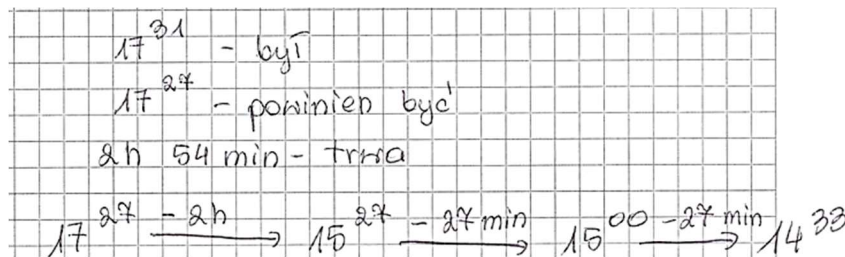 17³¹ - był
17²⁷ - powinien być
2h 54 min - trwa
17²⁷ -2h→ 15²⁷ -27 min→ 15⁰⁰ -27 min→ 14³³